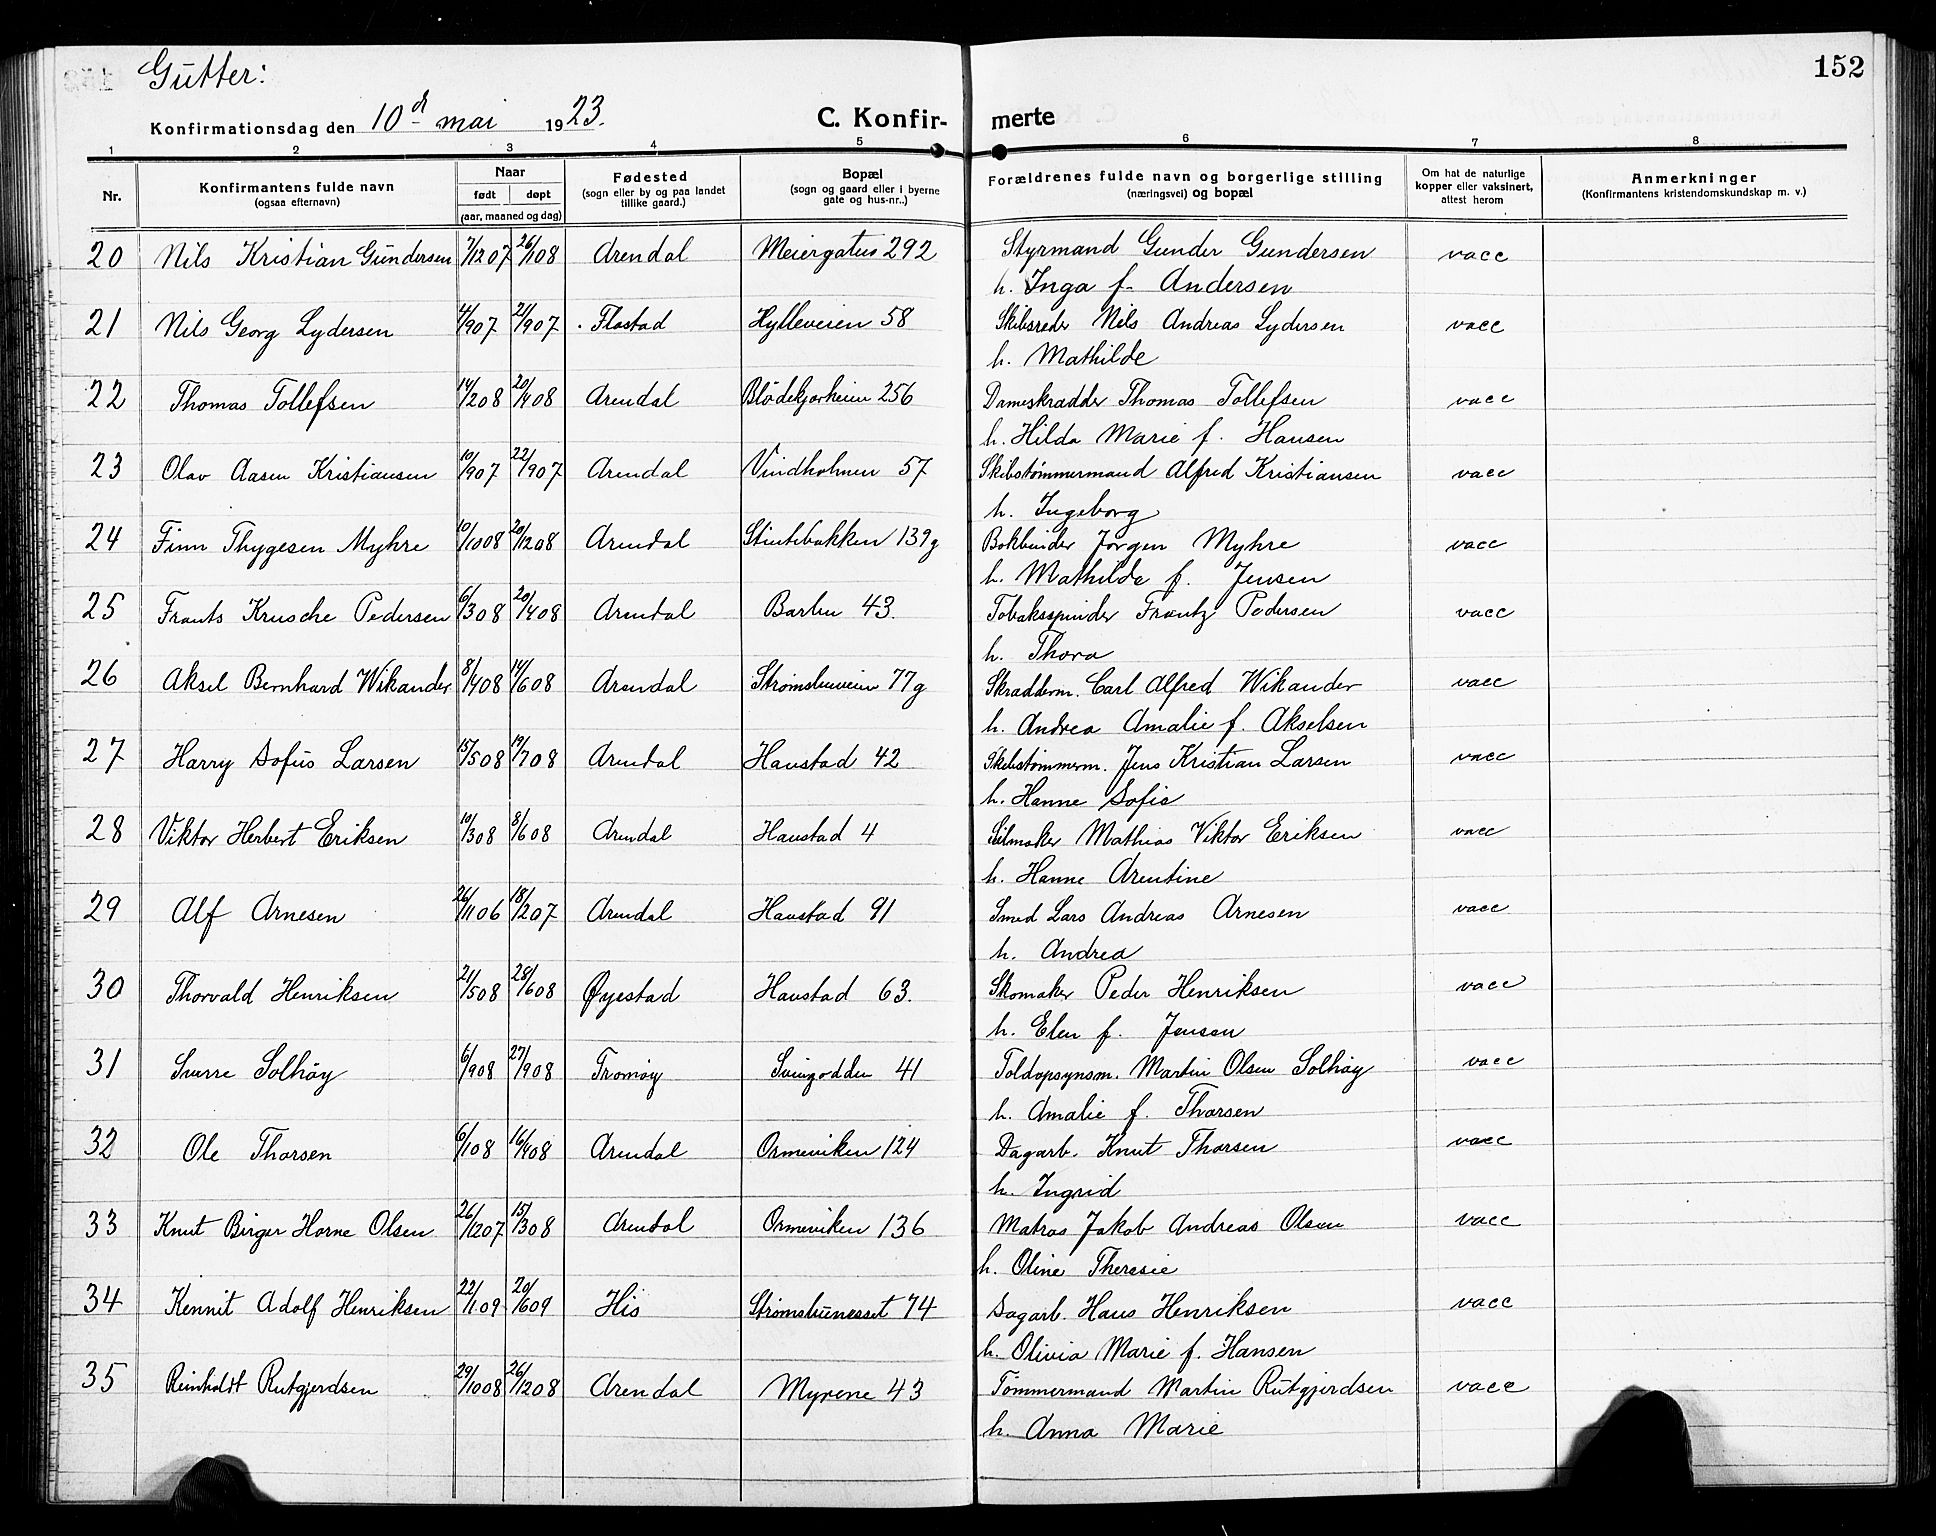 Gutter:
152
Konfirmationsdag den 10d mai 1923.
C. Konfirmerte
1 2 3 4 5 6 7 8
Nr. Konfirmantens fulde navn (ogsaa efternavn) Naar født døpt (aar, maaned og dag) Fødested (sogn eller by og paa landet tillike gaard.) Bopæl (sogn og gaard eller i byerne gate og hus-nr..) Forældrenes fulde navn og borgerlige stilling (næringsvei) og bopæl Om hat de naturlige kopper eller vaksinert, attest herom Anmerkninger (Konfirmantens kristendomskundskap m. v.)
20 Nils Kristian Gundersen 7/1207 26/108 Arendal Meiergaten 292 Styrmand Gunder Gundersen vacc
h. Inga f. Andersen
21 Nils Georg Lydersen 4/907 21/907 Flostad Hylleveien 58 Skibsreder Nils Andreas Lydersen vacc
h. Mathilde
22 Thomas Tollefsen 14/208 20/408 Arendal Blödekjærheien 256 Dameskrædder Thomas Tollefsen vacc
h. Hilda Marie f. Hansen
23 Olav Aasen Kristiansen 10/907 22/907 Arendal Vindholmen 57 Skibstømmermand Alfred Kristiansen vacc
h. Ingeborg
24 Finn Thygesen Myhre 10/1008 20/1208 Arendal Stintebakken 139g Bokbinder Jørgen Myhre vacc
h. Mathilde f. Jensen
25 Frants Krusche Pedersen 6/308 20/408 Arendal Barbu 43. Tobaksspinder Frantz Pedersen vacc
h. Thora
26 Aksel Bernhard Wikander 8/408 14/608 Arendal Strømsbuveien 77g Skrædderm. Carl Alfred Wikander vacc
h. Andrea Amalie f. Akselsen
27 Harry Sofus Larsen 15/508 19/708 Arendal Havstad 42 Skibstømmerm. Jens Kristian Larsen vacc
h. Hanne Sofie
28 Viktor Herbert Eriksen 10/308 8/608 Arendal Havstad 4 Seilmaker Mathias Viktor Eriksen vacc
h. Hanne Arentine
29 Alf Arnesen 26/1106 18/207 Arendal Havstad 91 Smed Lars Andreas Arnesen vacc
h. Andrea
30 Thorvald Henriksen 21/508 28/608 Øyestad Havstad 63. Skomaker Peder Henriksen vacc
h. Elen f. Jensen
31 Sverre Solhöy 6/908 27/908 Tromöy Svingodden 41 Toldopsynsm. Martin Olsen Solhöy vacc
h. Amalie f. Thorsen
32 Ole Thorsen 6/108 16/408 Arendal Ormeviken 124 Dagarb. Knut Thorsen vacc
h. Ingrid
33 Knut Birger Horne Olsen 26/1207 15/308 Arendal Ormeviken 136 Matros Jakob Andreas Olsen vacc
h. Oline Theresie
34 Kennit Adolf Henriksen 22/109 20/609 His Strömsbunesset 74 Dagarb. Hans Henriksen vacc
h. Olivia Marie f. Hansen
35 Reinholdt Rutgjerdsen 29/1008 26/1208 Arendal Myrene 43 Tömmermand Martin Rutgjerdsen vacc
h. Anna Marie